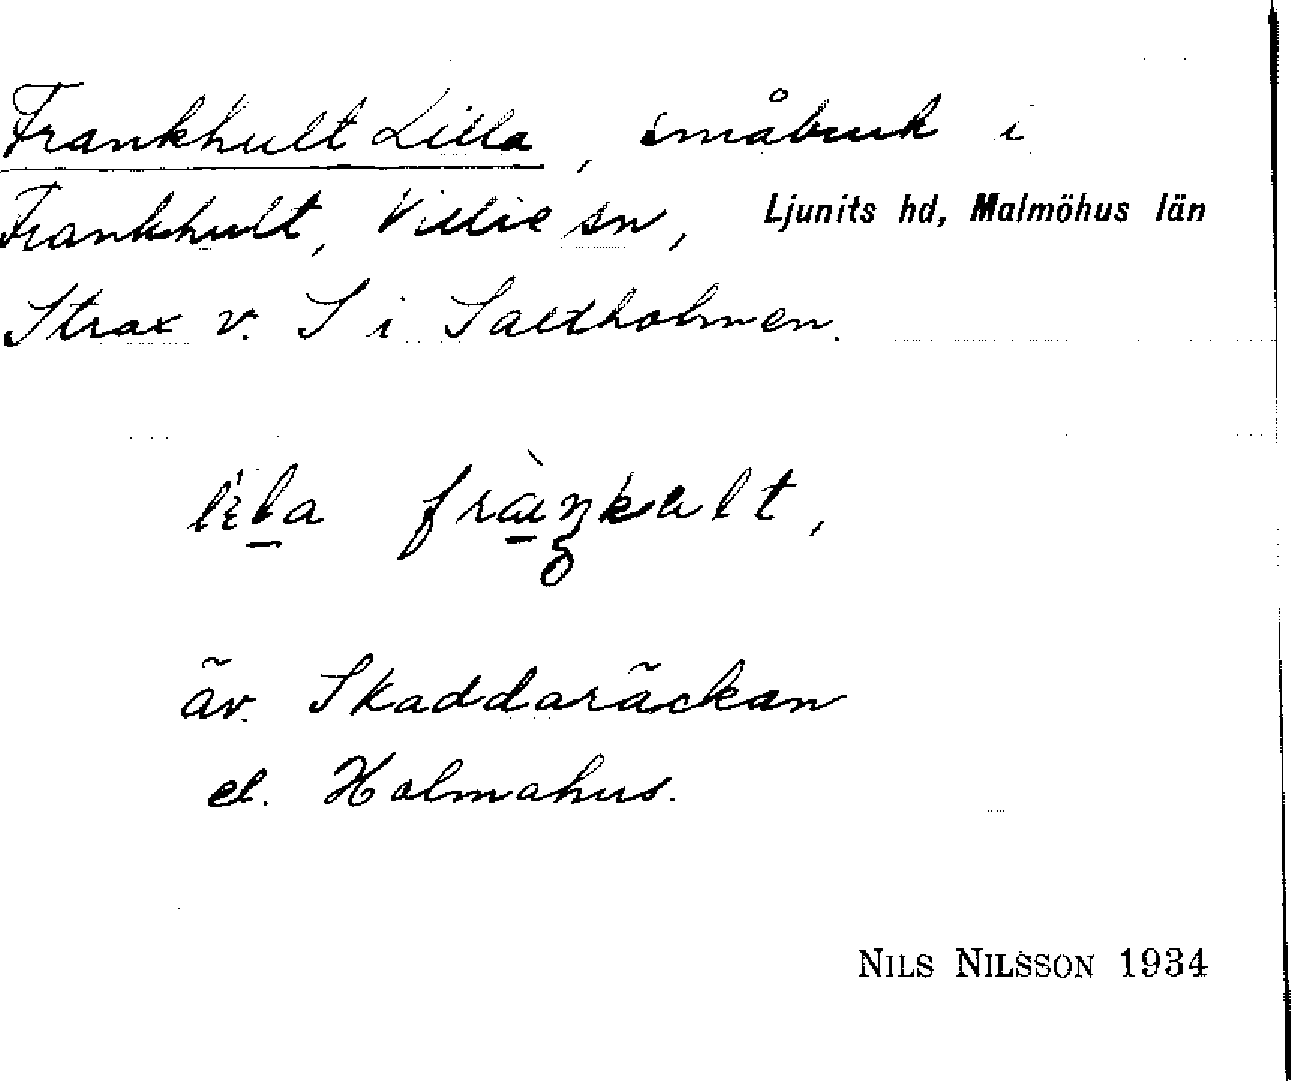 Frankhult Lilla, småbruk i
Frankhult, Villie sn, Ljunits hd, Malmöhus län
Strax v. S i Saltholmen.
lila fraŋkult,
äv. Skaddaräckan
el. Holmahus.
NILS NILSSON 1934